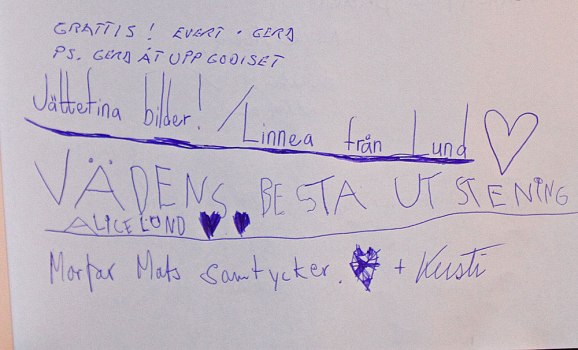 GRATTIS! EVERT + GERD
PS. GERD ÅT UPP GODISET
Jättefina bilder! / Linnea från Lund
VÄDENS BESTA UTSTENING
ALICE LUND
Morfar Mats samtycker. + Kersti